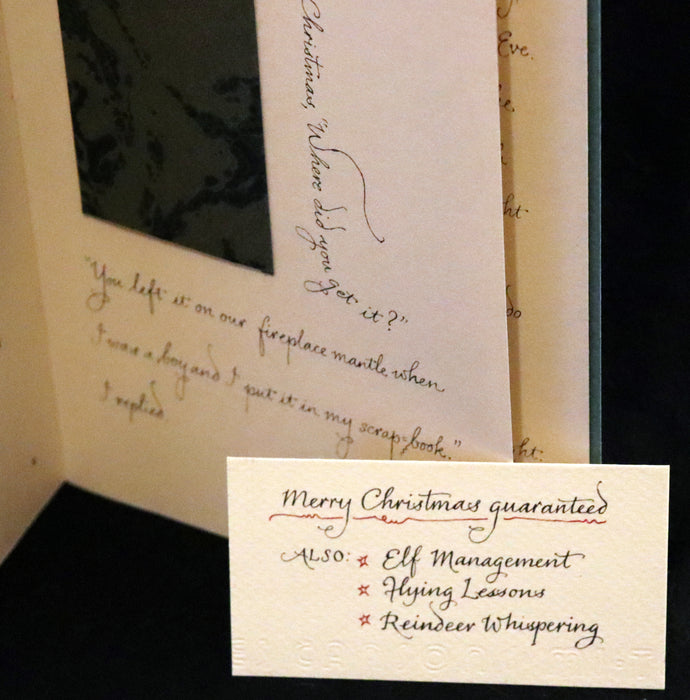 Christmas, "Where did you get it?"
"You left it on our fireplace mantle when
I was a boy and I put it in my scrap-book."
I replied.
Eve.
Merry Christmas guaranteed
ALSO: ☆ Elf Management
☆ Flying Lessons
☆ Reindeer Whispering